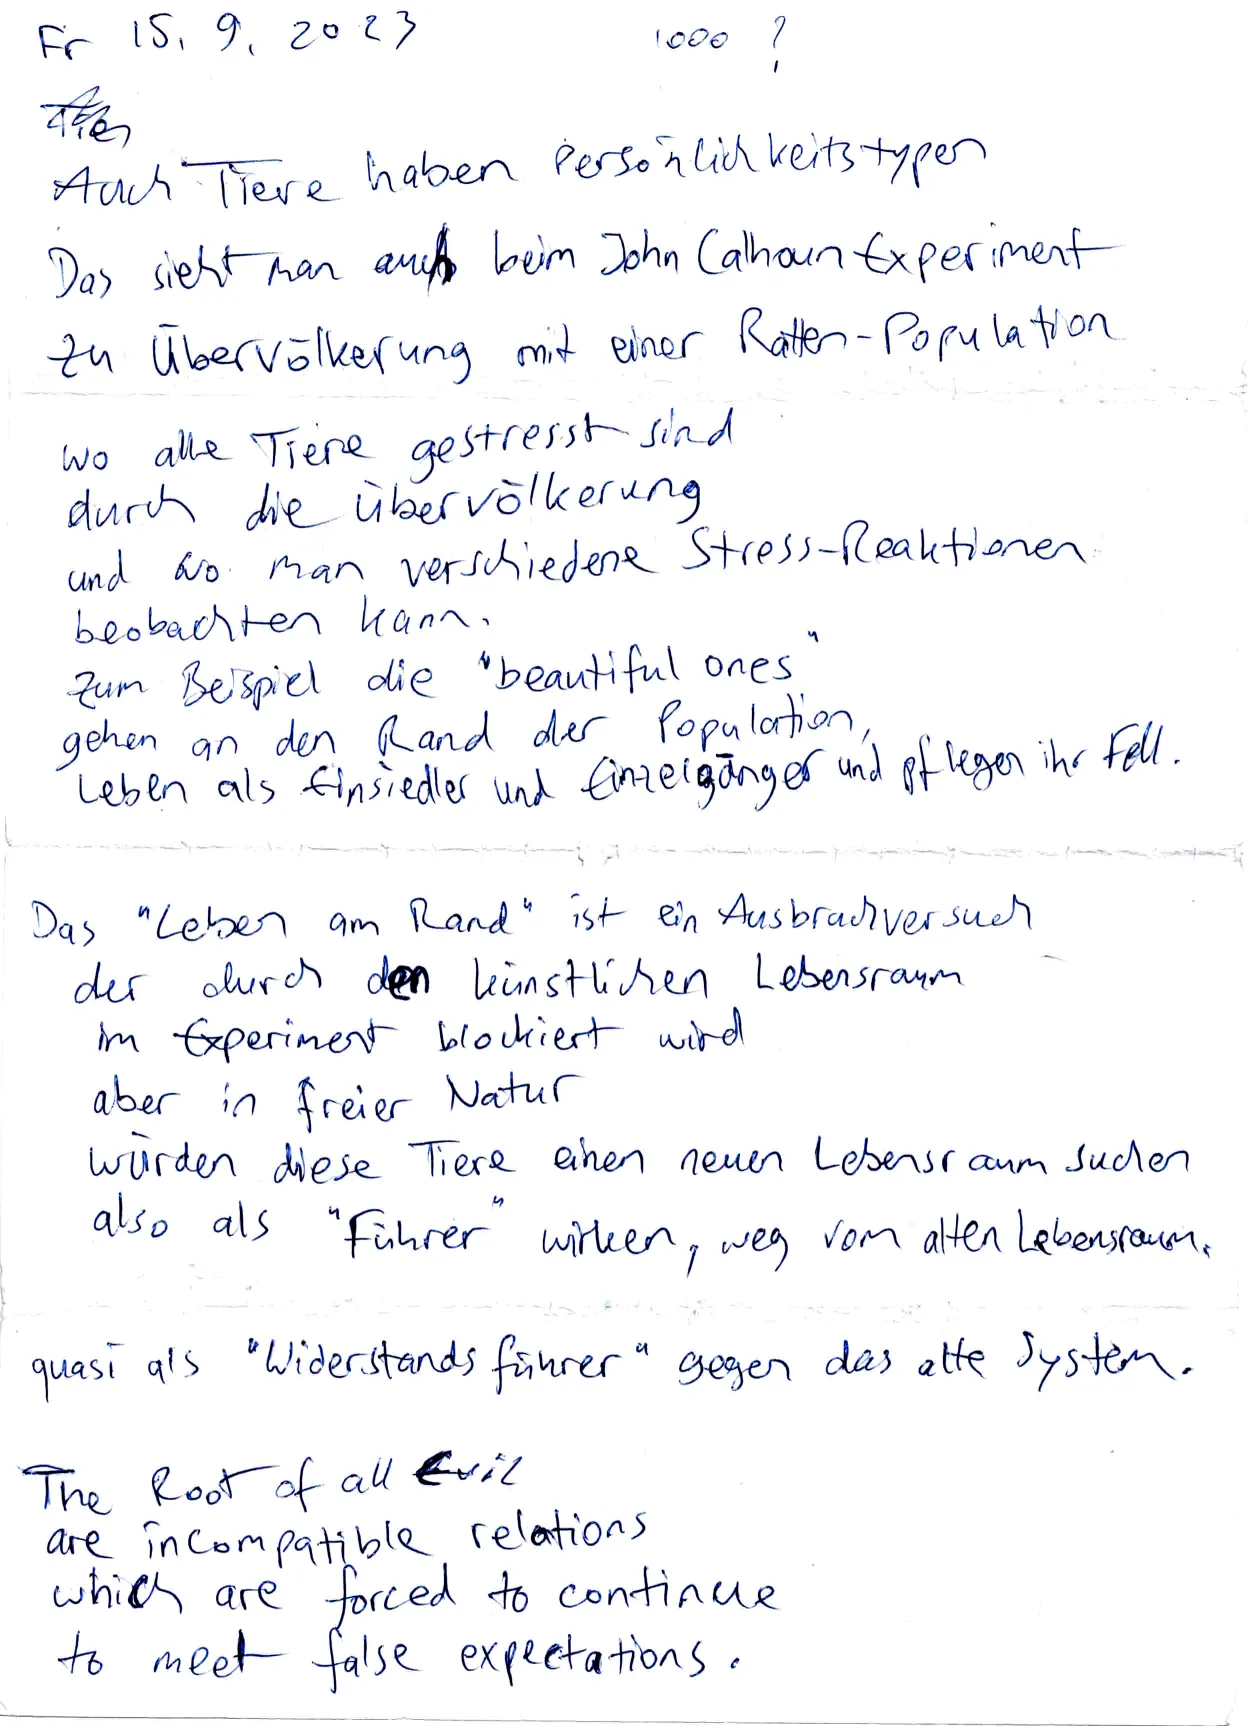 Fr 15. 9. 2023 1000 ?
Tier
Auch Tiere haben Persönlichkeitstypen
Das sieht man auch beim John Calhoun Experiment
zu Übervölkerung mit einer Ratten-Population
wo alle Tiere gestresst sind
durch die Übervölkerung
und wo man verschiedene Stress-Reaktionen
beobachten kann.
zum Beispiel die "beautiful ones"
gehen an den Rand der Population,
Leben als Einsiedler und Einzelgänger und pflegen ihr Fell.
Das "Leben am Rand" ist ein Ausbruchversuch
der durch den künstlichen Lebensraum
im Experiment blockiert wird
aber in freier Natur
würden diese Tiere einen neuen Lebensraum suchen
also als "Führer" wirken, weg vom alten Lebensraum.
quasi als "Widerstandsführer" gegen das alte System.
The Root of all Evil
are incompatible relations
which are forced to continue
to meet false expectations.